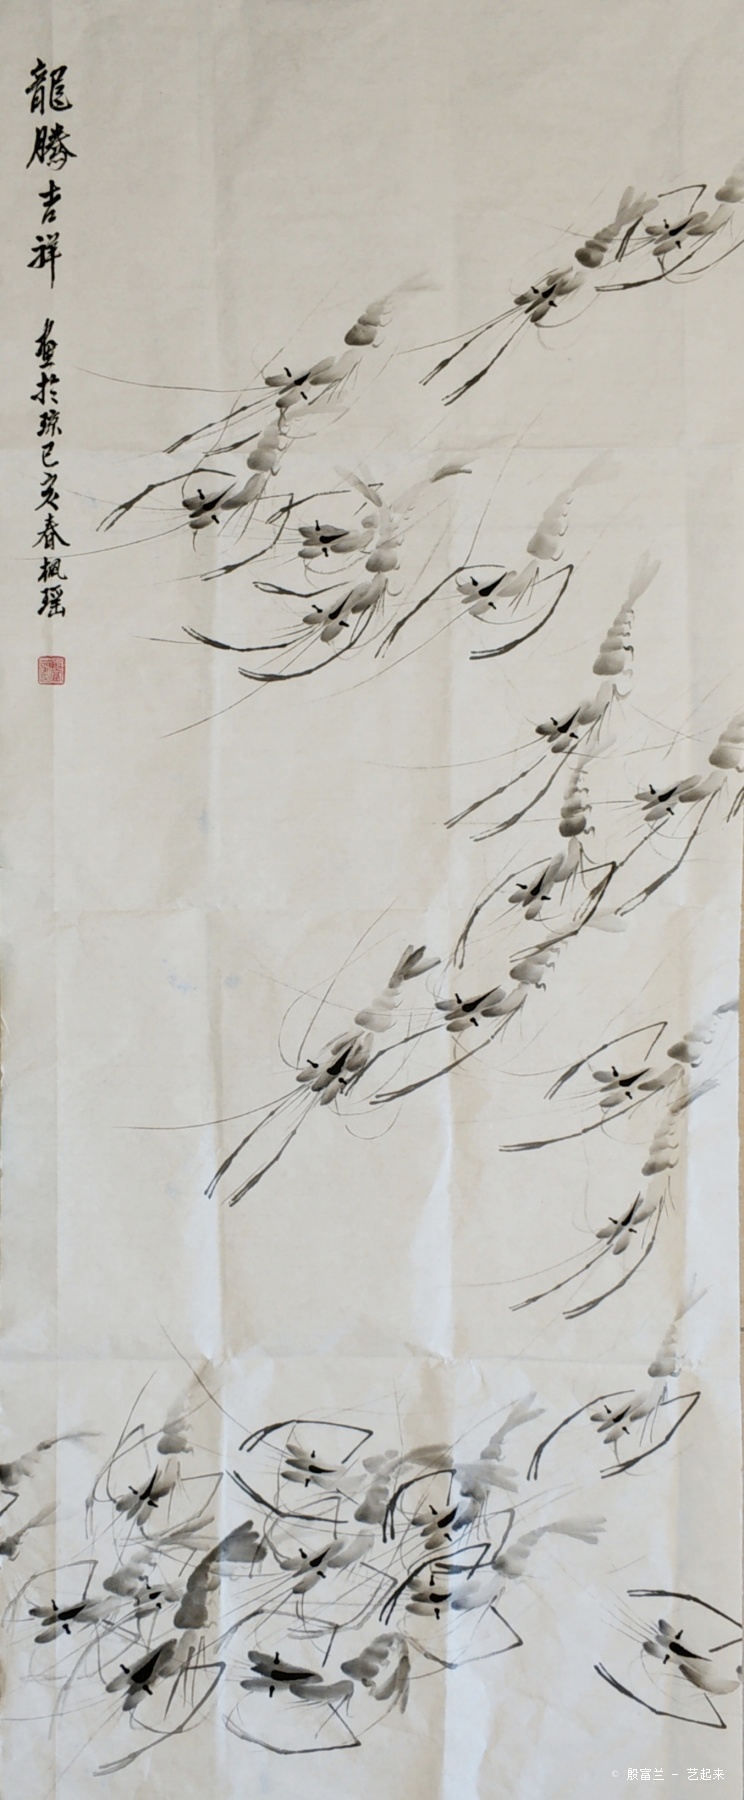 龍騰吉祥
畫於琼己亥春楓瑶
© 殷富兰 - 艺起来